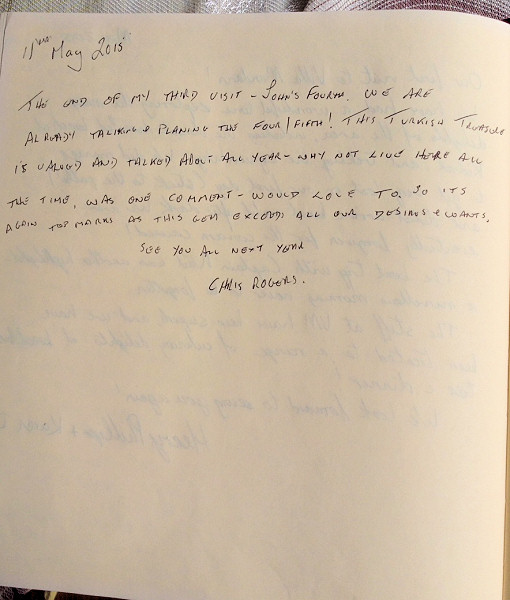 11th May 2015
THE END OF MY THIRD VISIT - JOHN'S FOURTH. WE ARE
ALREADY TALKING & PLANING THE FOUR/FIFTH! THIS TURKISH TREASURE
IS VALUED AND TALKED ABOUT ALL YEAR - WHY NOT LIVE HERE ALL
THE TIME, WAS ONE COMMENT - WOULD LOVE TO. SO ITS
AGAIN TOP MARKS AS THIS GEM EXCEEDS ALL OUR DESIRES & WANTS.
SEE YOU ALL NEXT YEAR
CHRIS ROGERS.